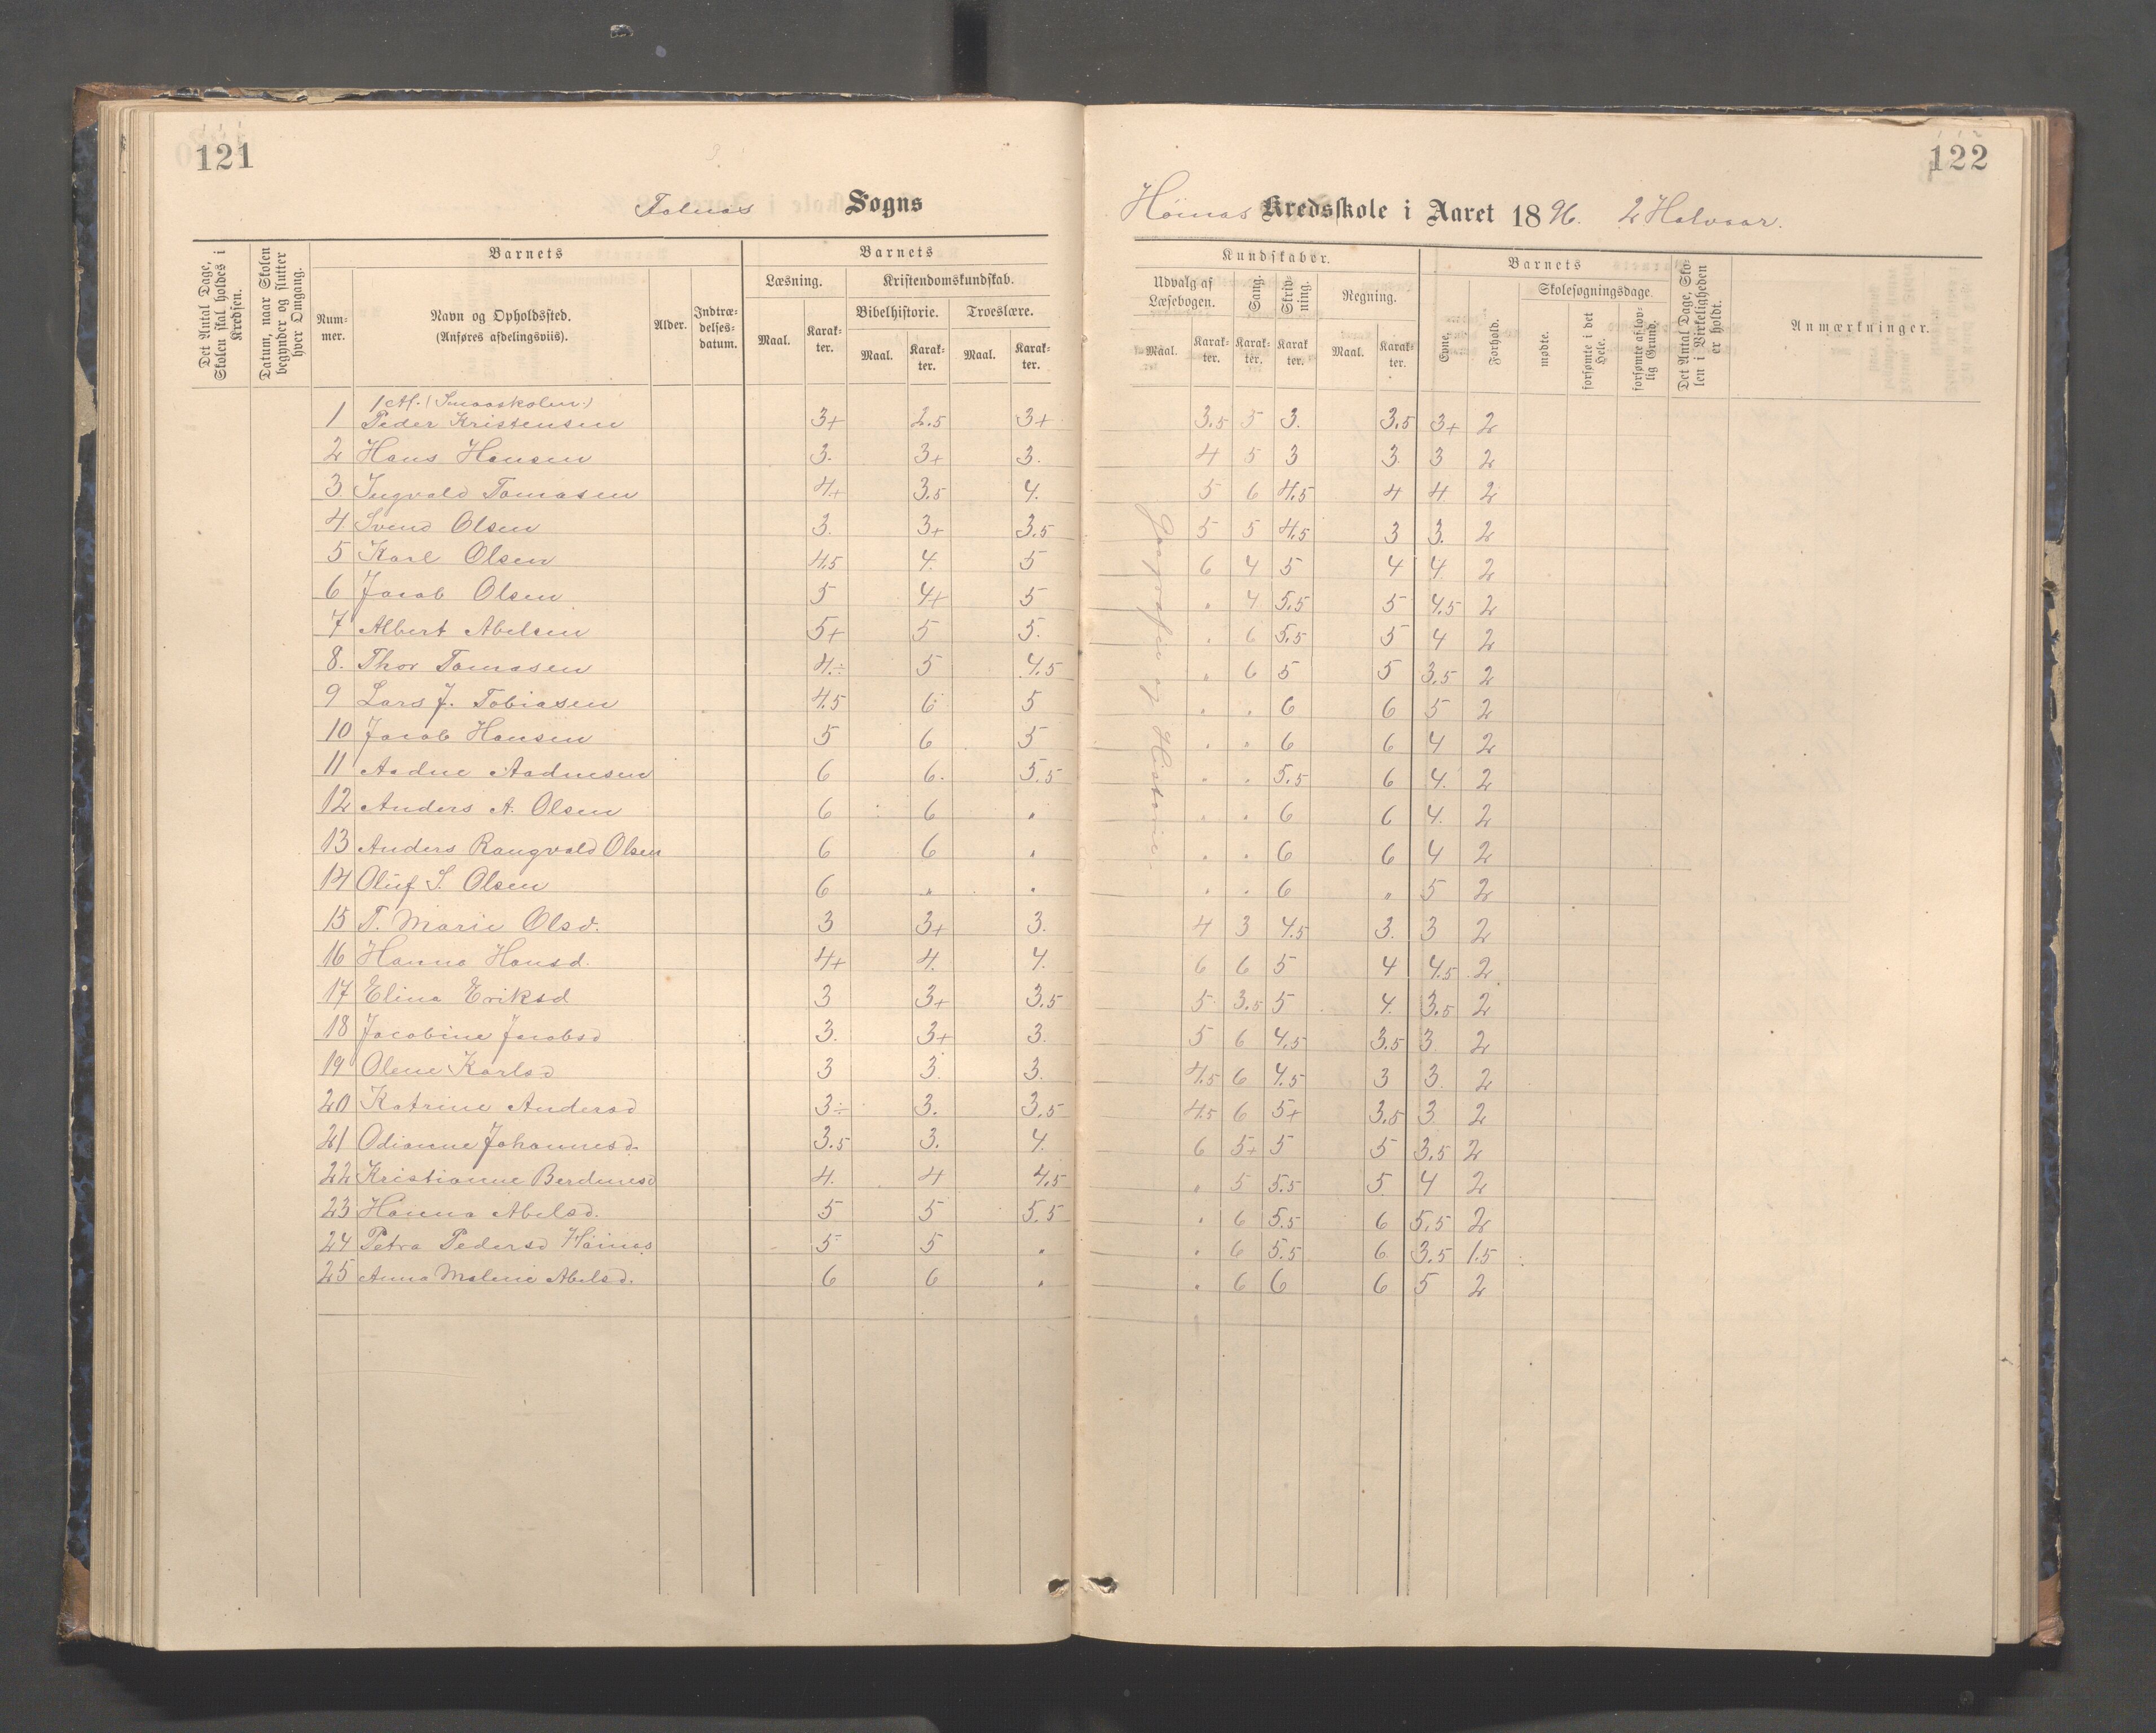 121
Sogns
Det Antal Dage, Skolen skal holdes i Kredsen.
Datum, naar Skolen begynder og slutter hver Omgang.
Barnets
Barnets
Num-mer.
Navn og Opholdssted.
(Anføres afdelingsviis).
Alder.
Indtræ-delses-datum.
Læsning.
Kristendomskundskab.
Bibelhistorie.
Troeslære.
Maal.
Karak-ter.
Maal.
Karak-ter.
Maal.
Karak-ter.
(Smaaskolen)
1 Peder Kristensen 3+ 2.5 3+
2 Hans Hansen 3. 3+ 3.
3. Ingvald Tomasen 4+ 3.5 4.
4 Svend Olsen 3. 3+ 3.5
5 Karl Olsen 4.5 4. 5
6 Jacob Olsen 5 4+ 5
7 Albert Abelsen 5+ 5 5.
8. Thor Tomasen 4÷ 5 4.5
9 Lars J. Tobiasen 4.5 6 5
10 Jacob Hansen 5 6 5
11 Aadne Aadnesen 6 6. 5.5
12 Anders A. Olsen 6 6 "
13 Anders Rangvald Olsen 6 6 "
14 Oluf S. Olsen 6 " "
15 T. Marie Olsd. 3 3+ 3.
16 Hanna Hansd. 4+ 4. 4.
17 Elina Eriksd 3 3+ 3.5
18 Jacobine Jacobsd 3. 3+ 3.
19 Olene Karlsd 3 3. 3.
20 Katrine Andersd 3÷ 3. 3.5
21 Odianne Johannesd. 3.5 3. 4.
22 Kristianne Berdinesd 4. 4 4.5
23 Hanna Abelsd. 5 5 5.5
24 Petra Pedersd Höines 5 5 "
25 Anna Malene Abelsd. 6 6 "
122
Höinas Kredsskole i Aaret 1896. 2 Halvaar.
Kundskaber.
Barnets
Udvalg af Læsebogen.
Sang.
Skriv-ning.
Regning.
Evne.
Forhold.
Skolesøgningsdage
mødte.
forsømte i det Hele.
forsømte af lov-lig Grund.
Det Antal Dage, Sko-len i Virkeligheden er holdt.
Anmærkninger.
Maal.
Karak-ter.
Karak-ter.
Karak ter.
Maal.
Karak-ter.
3.5 5 3. 3.5 3+ 2
4 5 3 3. 3 2
5 6 4.5 4 4 2
5 5 4.5 3 3. 2
6 4 5 4 4. 2
" 4 5.5 5 4.5 2
" 6 5.5 5 4 2
" 6 5 5 3.5 2
" " 6 6 5 2
" " 6 6 4 2
" " 5.5 6 4. 2
" " 6 6 4. 2
" " 6 6 4 2
" " 6 " 5 2
4 3 4.5 3. 3 2
6 6 5 4 4.5 2
5 3.5 5 4. 3.5 2
5 6 4.5 3.5 3 2
4.5 6 4.5 3 3. 2
4.5 6 5+ 3.5 3 2
6 5+ 5 5 3.5 2
" 5 5.5 5. 4 2
" 6 5.5 6 5.5 2
" 6 5.5 6 3.5 1.5
" 6 6 6 5 2
Geografi og Historie